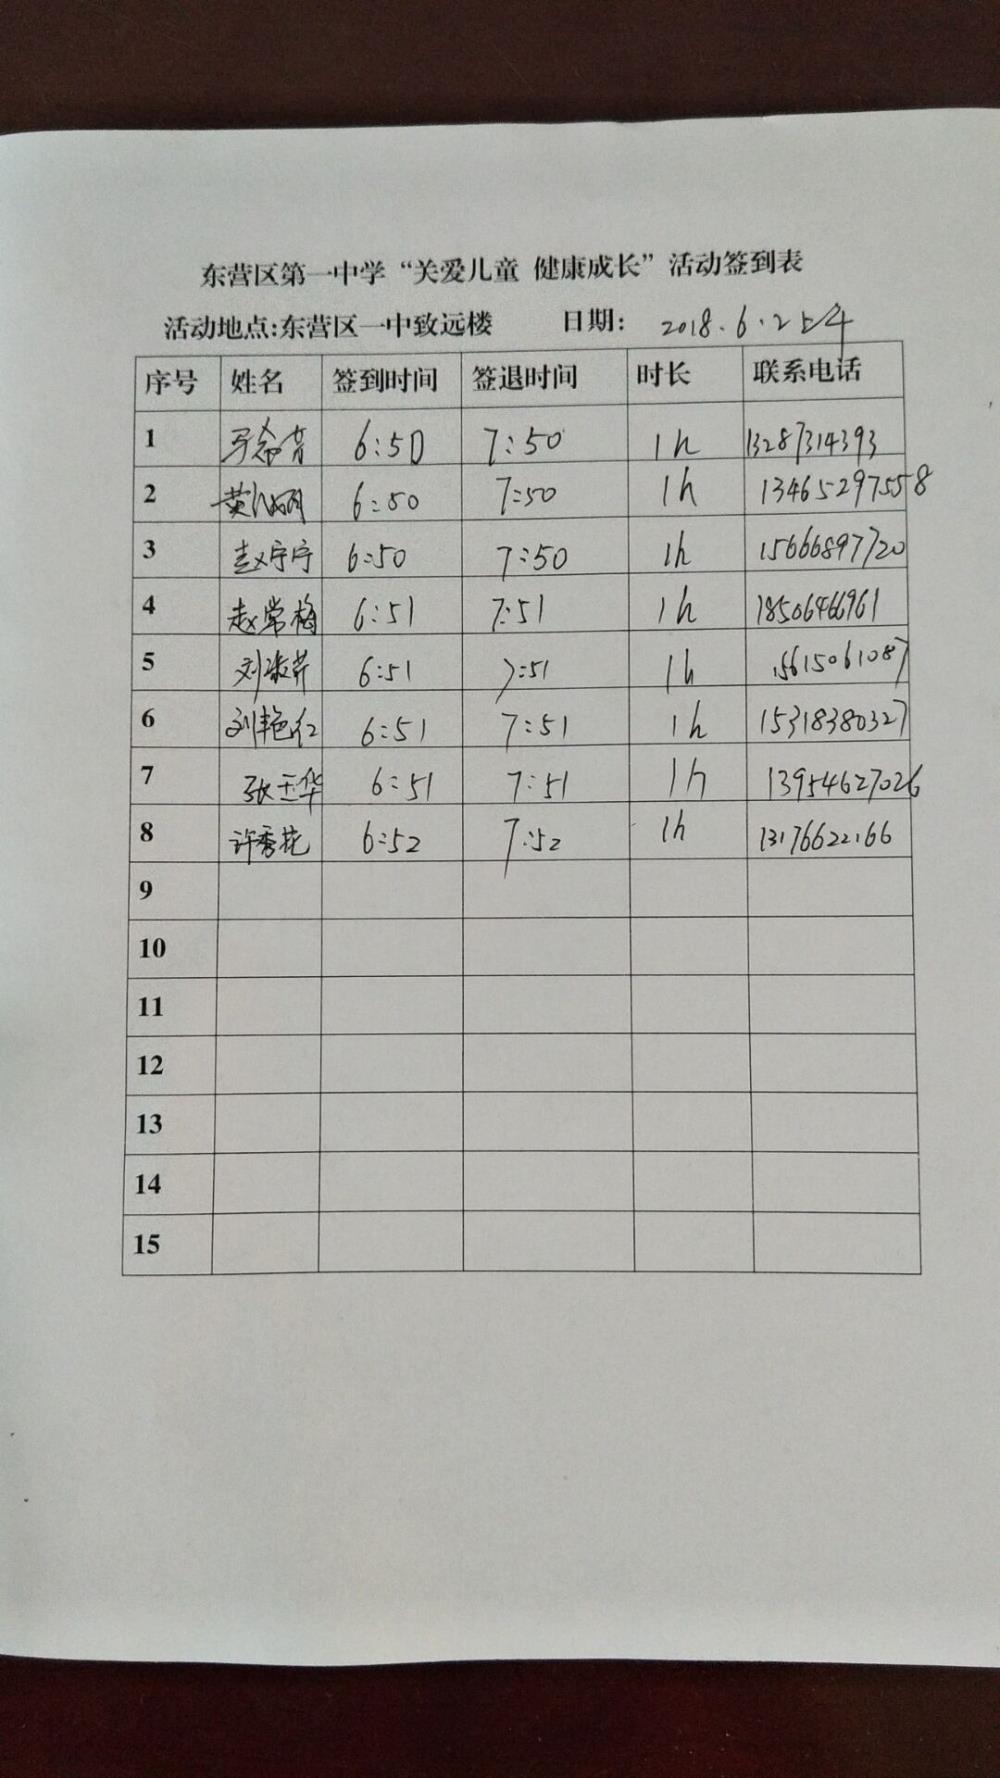 东营区第一中学“关爱儿童 健康成长”活动签到表
活动地点:东营区一中致远楼 日期: 2018.6.25上午
序号 姓名 签到时间 签退时间 时长 联系电话
1 6:50 7:50 1h 13287314393
2 6:50 7:50 1h 13465297558
3 赵宁宁 6:50 7:50 1h 15666897720
4 赵常梅 6:51 7:51 1h 18506466961
5 6:51 7:51 1h 15615061087
6 刘艳红 6:51 7:51 1h 15318380327
7 张玉华 6:51 7:51 1h 13954627026
8 许秀花 6:52 7:52 1h 13176622166
9
10
11
12
13
14
15